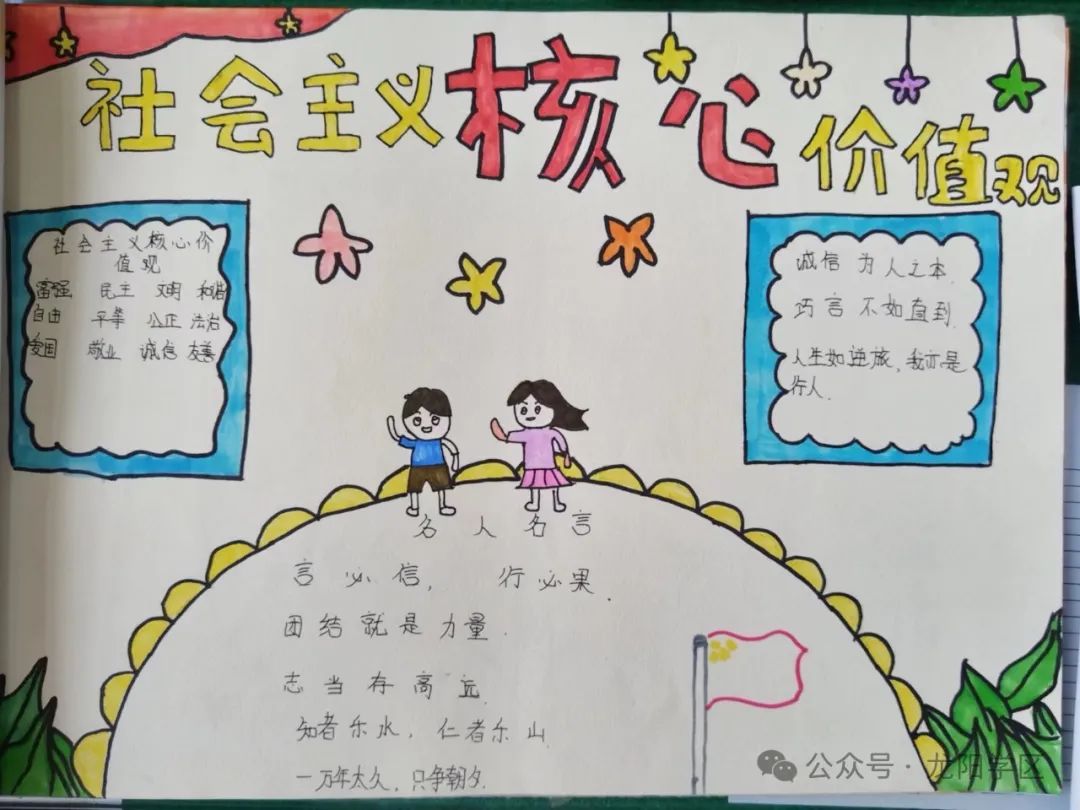 社会主义核心价值观
社会主义核心价
值观
富强 民主 文明 和谐
自由 平等 公正 法治
爱国 敬业 诚信 友善
诚信 为 人之本.
巧言 不如直到.
人生如逆旅,我亦是
行人.
名人名言
言必信, 行必果.
团结就是力量.
志当存高远.
知者乐水, 仁者乐山.
一万年太久,只争朝夕.
公众号·龙阳学区